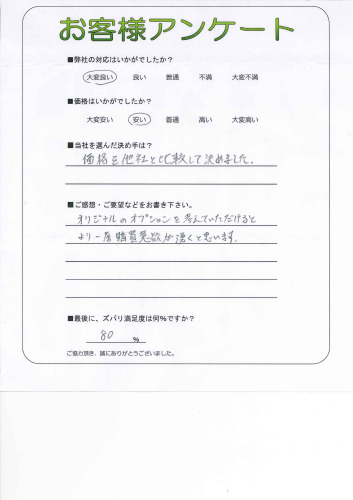 お客様アンケート
■弊社の対応はいかがでしたか？
大変良い 良い 普通 不満 大変不満
■価格はいかがでしたか？
大変安い 安い 普通 高い 大変高い
■当社を選んだ決め手は？
価格を他社と比較して決めました。
■ご感想・ご要望などをお書き下さい。
オリジナルのオプションを考えていただけると
より一層購買意欲が湧くと思います。
■最後に、ズバリ満足度は何％ですか？
80 ％
ご協力頂き、誠にありがとうございました。